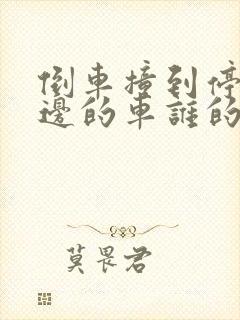 倒車撞到停
邊的車誰的
莫畏君